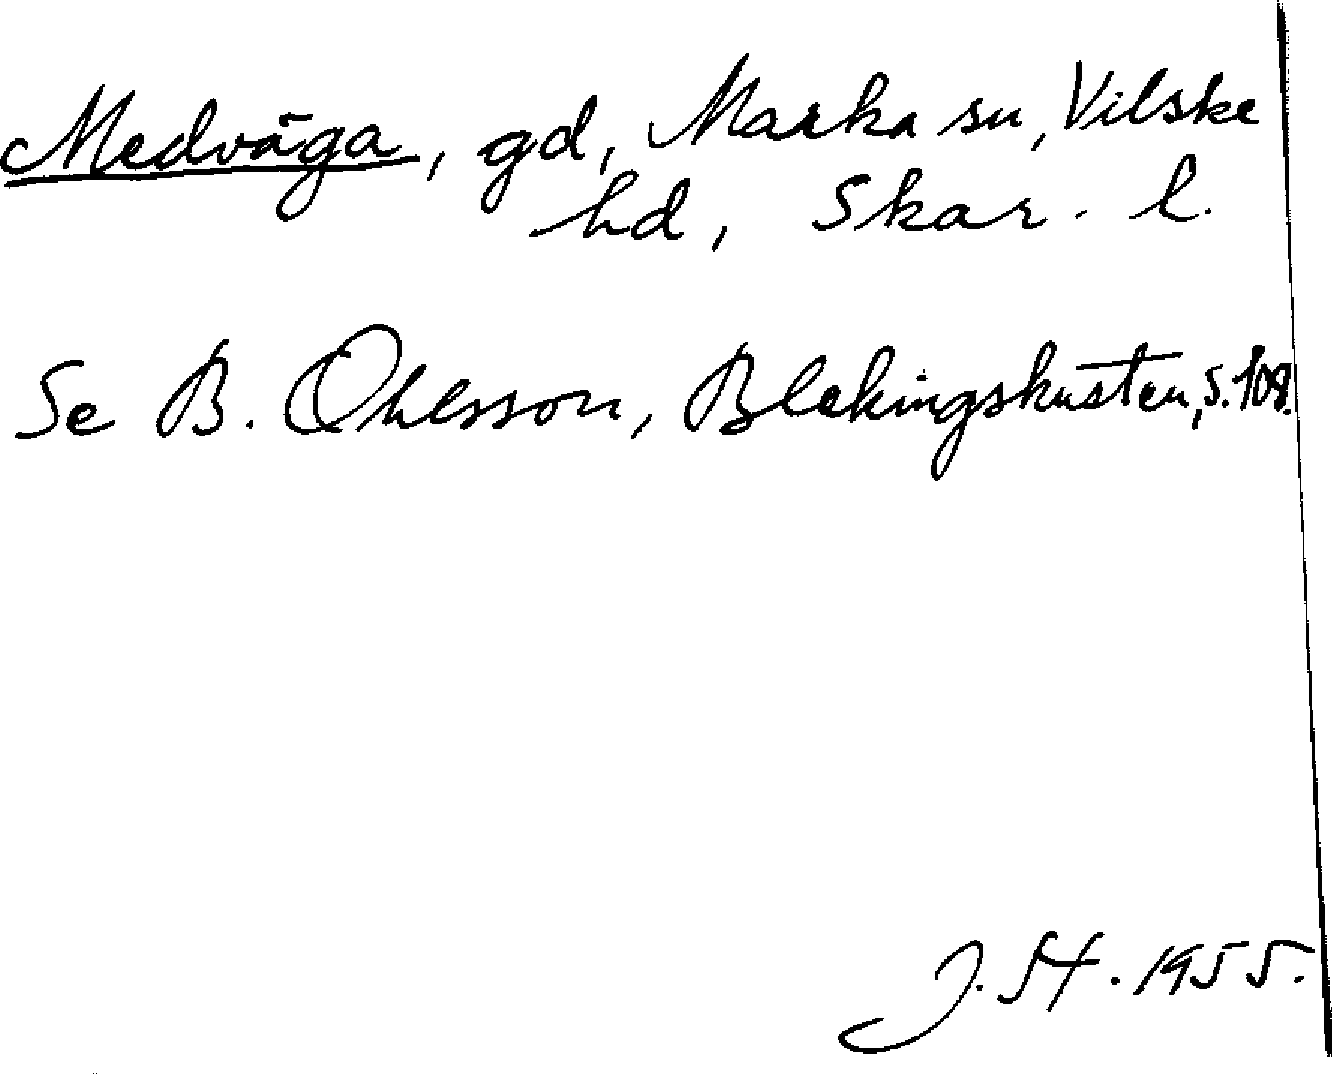 Medväga, gd, Marka sn, Vilske
hd, Skar. l.
Se B. Ohlsson, Blekingskusten, s. 108.
J. St. 1955.